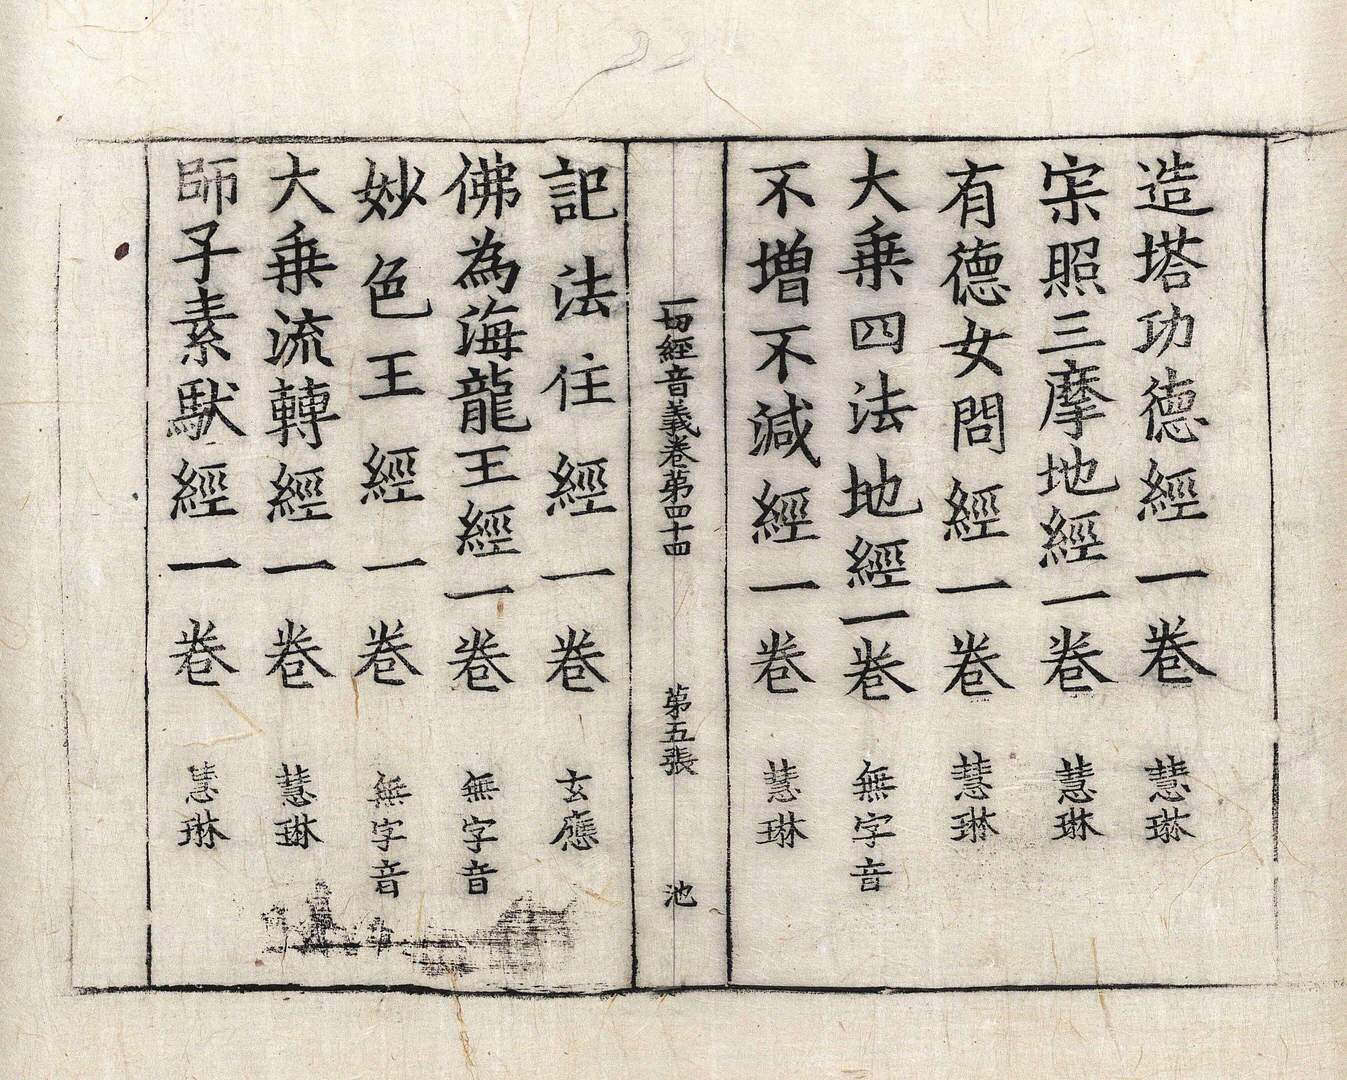 造塔功德經一卷 慧琳
宲照三摩地經一卷 慧琳
有德女問經一卷 慧琳
大乗四法地經一卷 無字音
不增不減經一卷 慧琳
一切經音義卷苐四十四 苐五張 池
記法住經一卷 玄應
佛為海龍王經一卷 無字音
妙色王經一卷 無字音
大乗流轉經一卷 慧琳
師子素馱經一卷 慧琳